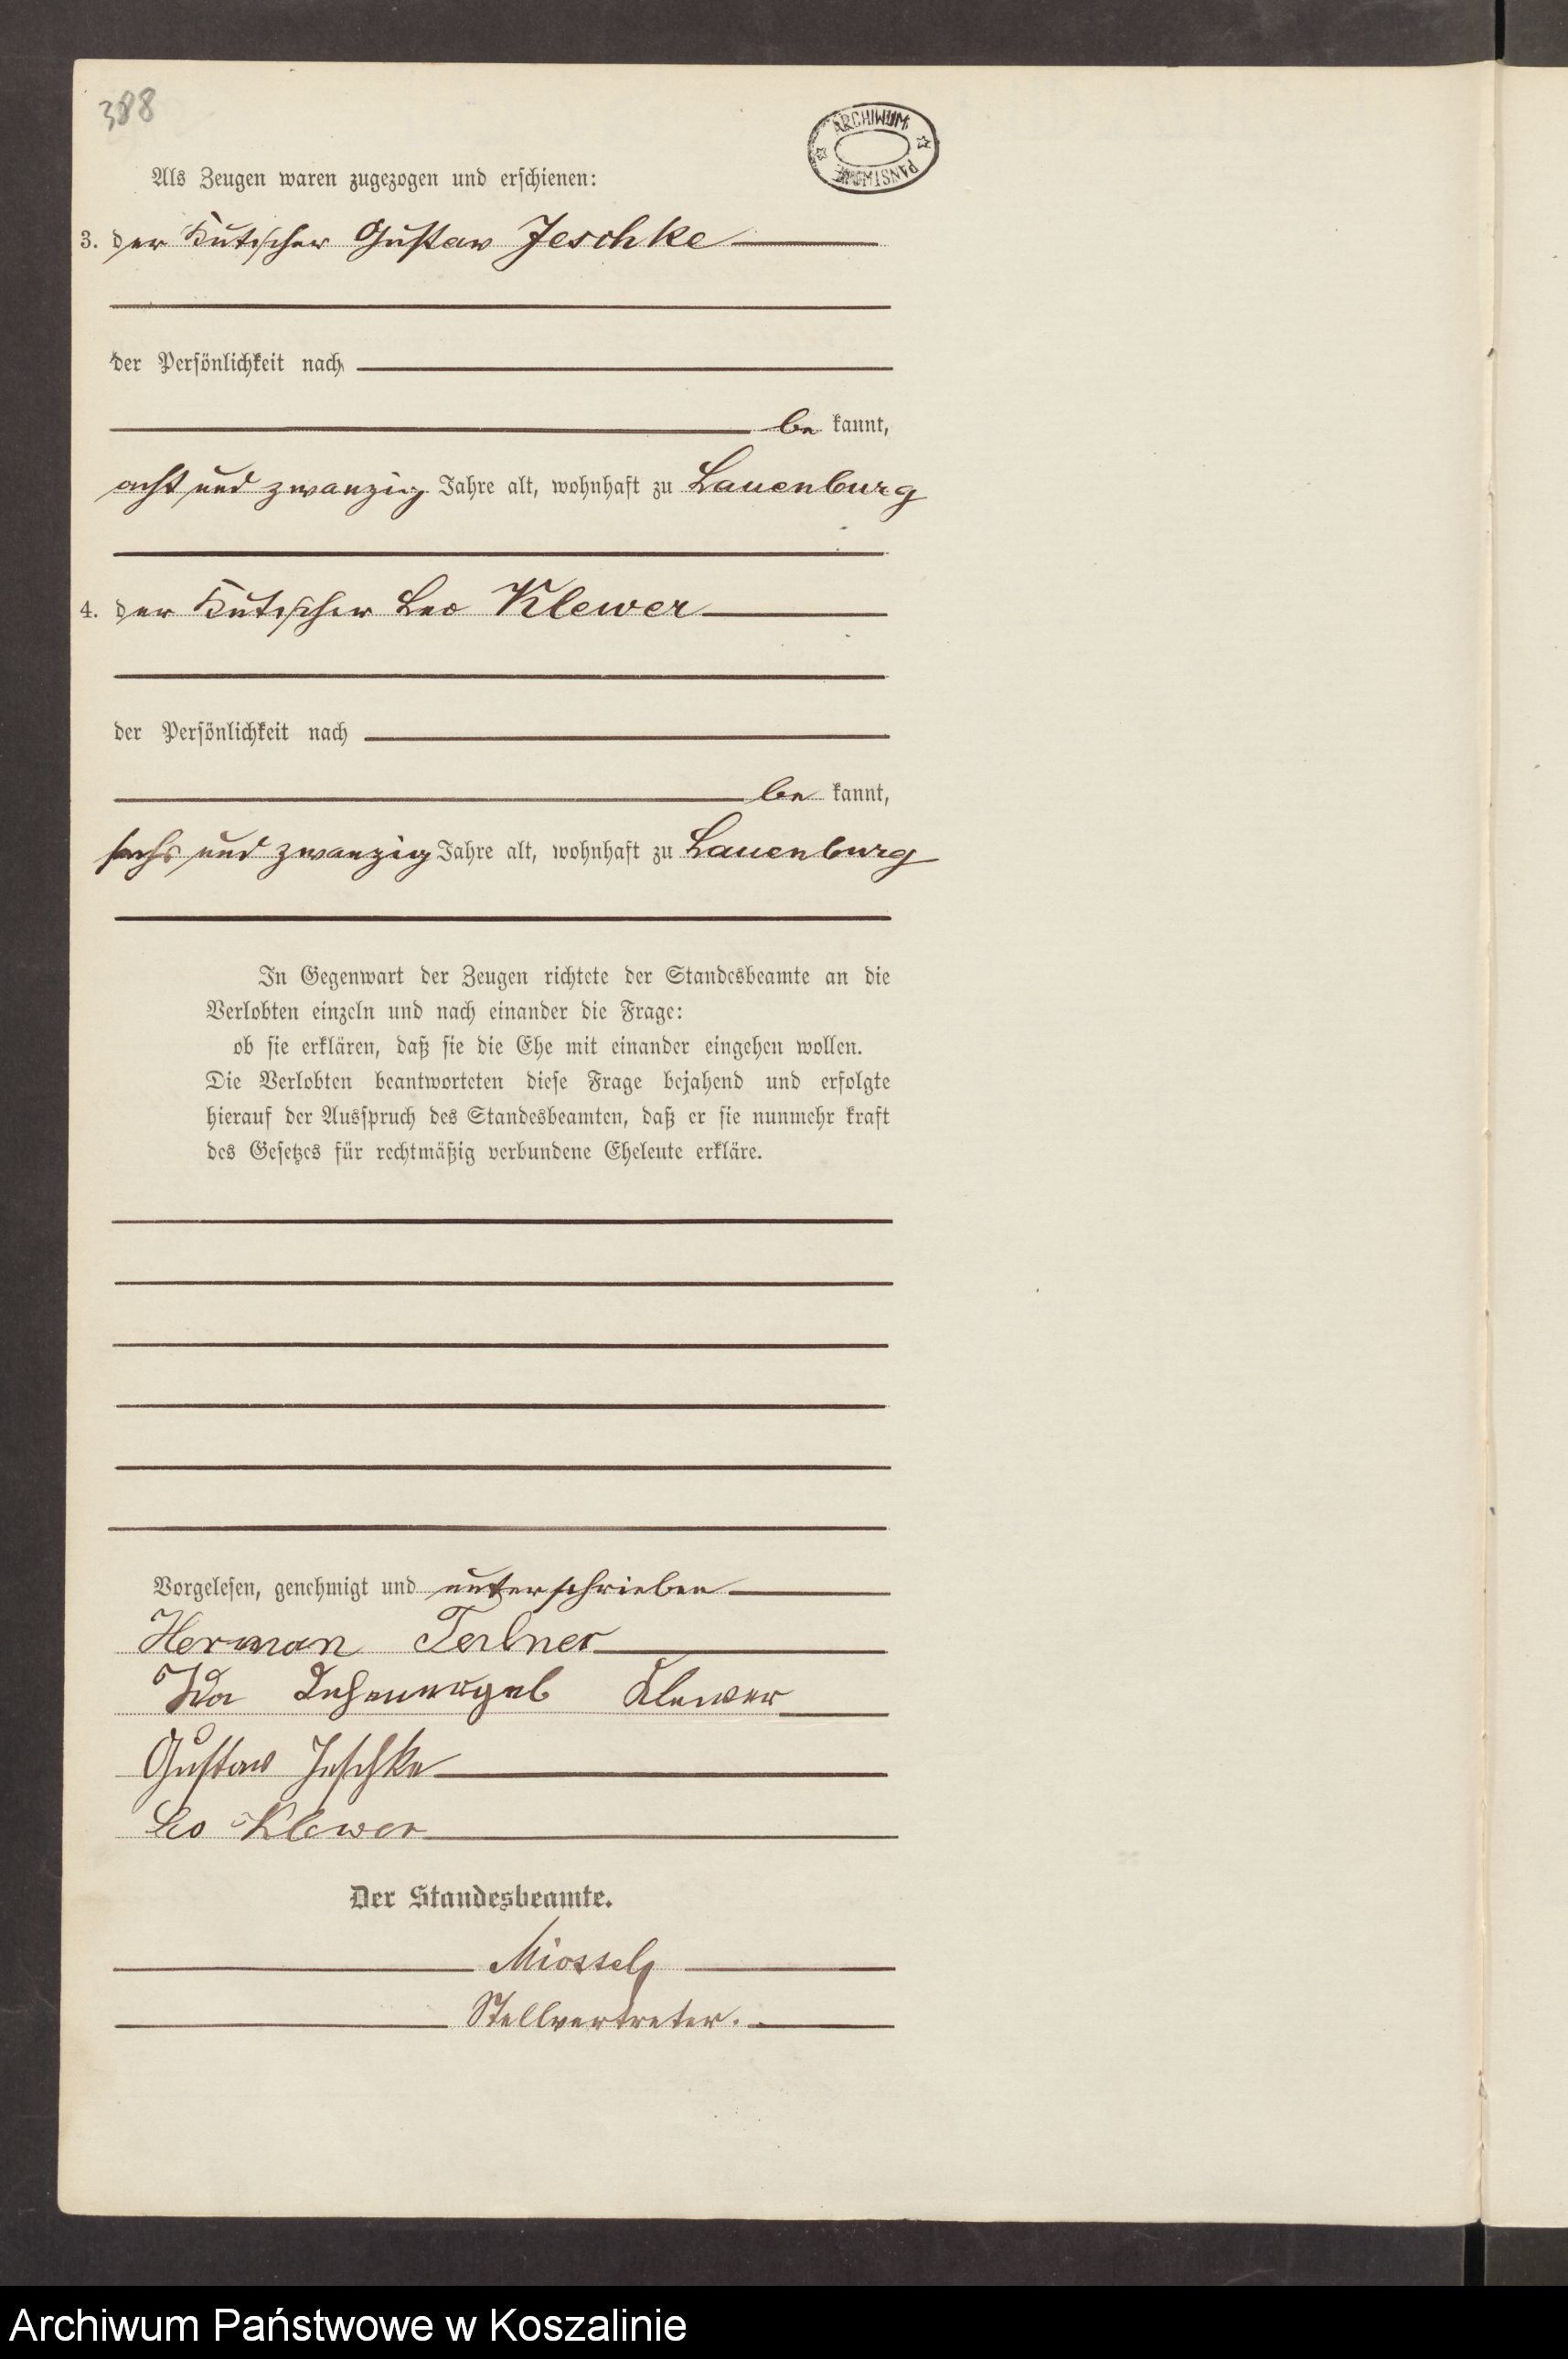 388
ARCHIWUM PAŃSTWOWE
Als Zeugen waren zugezogen und erschienen:
3. der Kutscher Gustav Jeschke
der Persönlichkeit nach
be kannt,
acht und zwanzig Jahre alt, wohnhaft zu Lauenburg
4. der Kutscher Leo Klewer
der Persönlichkeit nach
be kannt,
sechs und zwanzig Jahre alt, wohnhaft zu Lauenburg
In Gegenwart der Zeugen richtete der Standesbeamte an die
Verlobten einzeln und nach einander die Frage:
ob sie erklären, daß sie die Ehe mit einander eingehen wollen.
Die Verlobten beantworteten diese Frage bejahend und erfolgte
hierauf der Ausspruch des Standesbeamten, daß er sie nunmehr kraft
des Gesetzes für rechtmäßig verbundene Eheleute erkläre.
Vorgelesen, genehmigt und unterschrieben
Herman
Ida Klewer
Gustav Jeschke
Leo Klewer
Der Standesbeamte.
Stellvertreter.
Archiwum Państwowe w Koszalinie